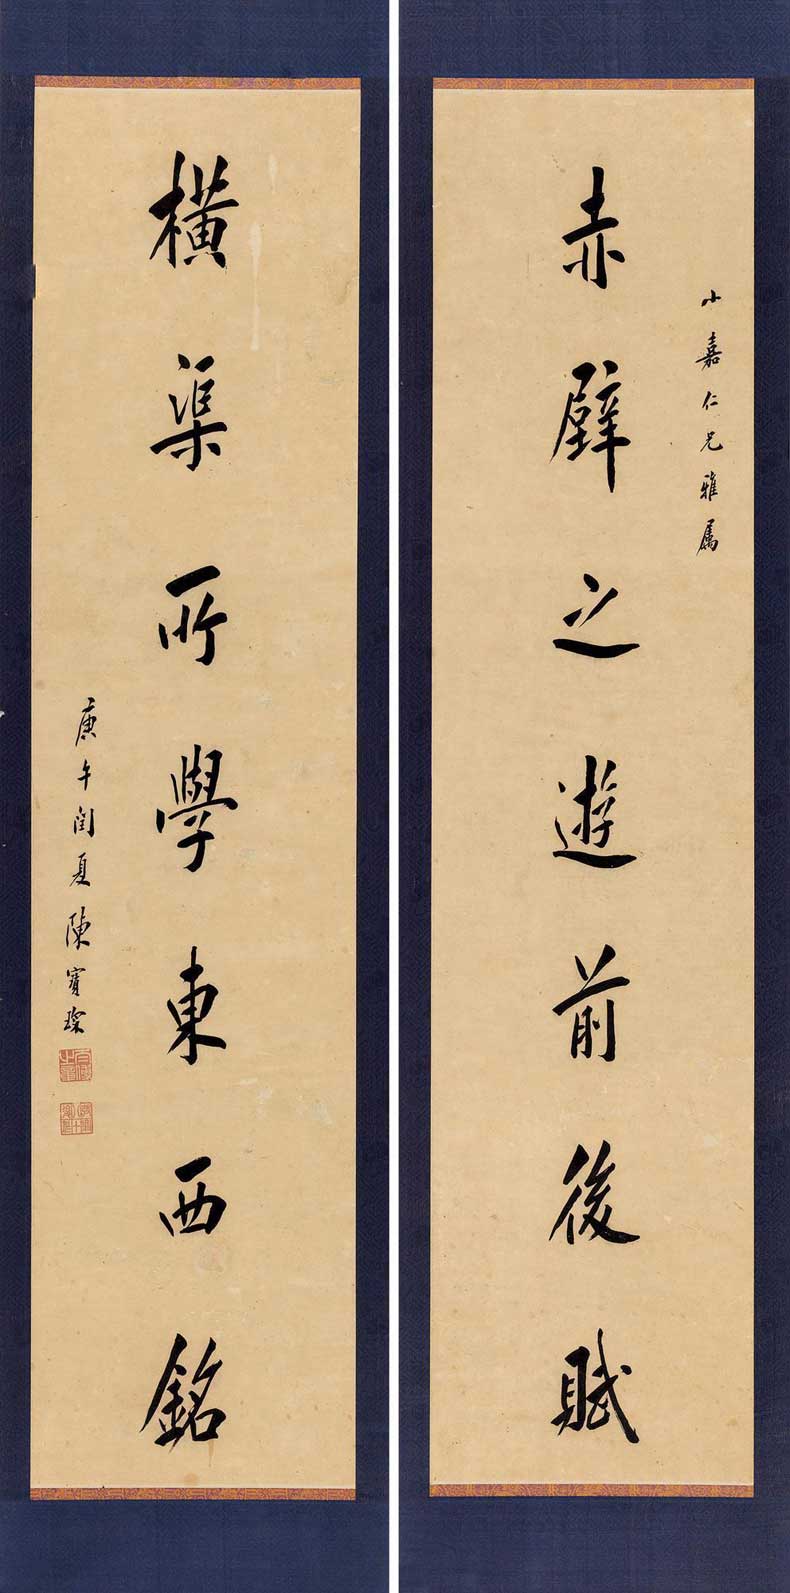 小嘉仁兄雅属
赤壁之遊前後賦
橫渠所學東西銘
庚午閏夏陳寶琛